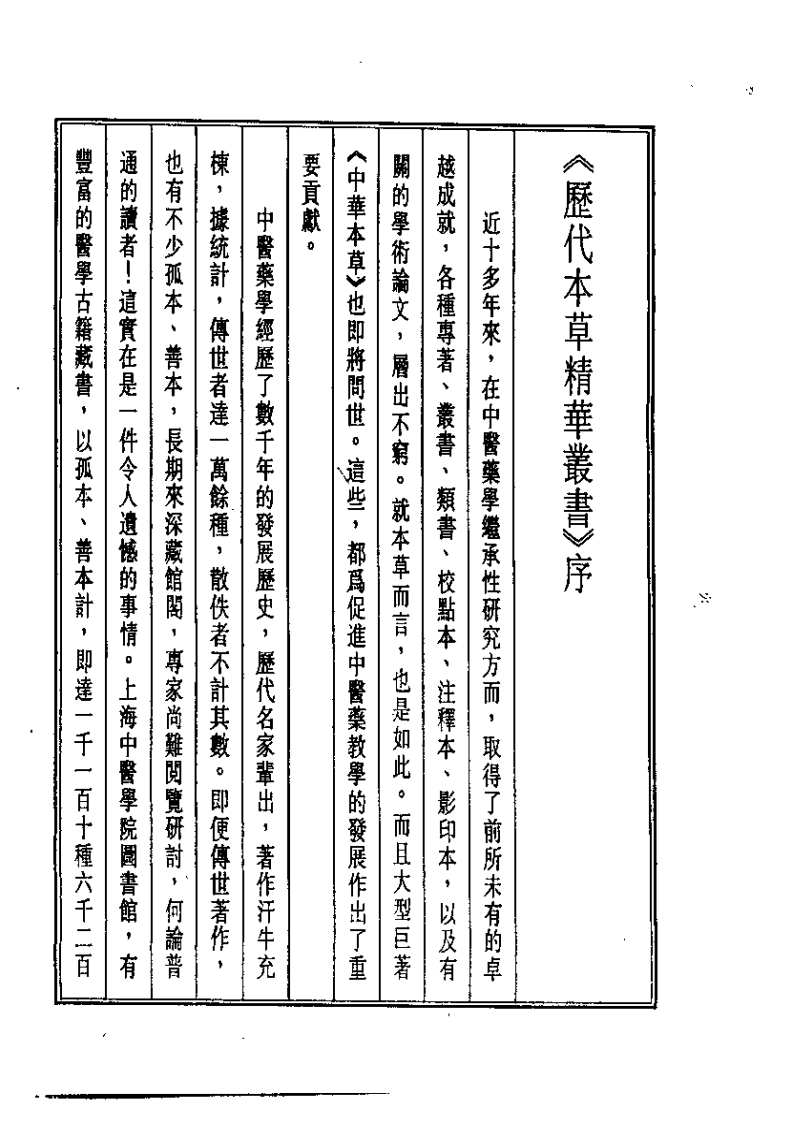 《歷代本草精華叢書》序
近十多年來，在中醫藥學繼承性研究方面，取得了前所未有的卓
越成就，各種專著、叢書、類書、校點本、注釋本、影印本，以及有
關的學術論文，層出不窮。就本草而言，也是如此。而且大型巨著
《中華本草》也即將問世。這些，都爲促進中醫藥教學的發展作出了重
要貢獻。
中醫藥學經歷了數千年的發展歷史，歷代名家輩出，著作汗牛充
棟，據統計，傳世者達一萬餘種，散佚者不計其數。即便傳世著作，
也有不少孤本、善本，長期來深藏館閣，專家尚難閱覽研討，何論普
通的讀者！這實在是一件令人遺憾的事情。上海中醫學院圖書館，有
豐富的醫學古籍藏書，以孤本、善本計，即達一千一百十種六千二百